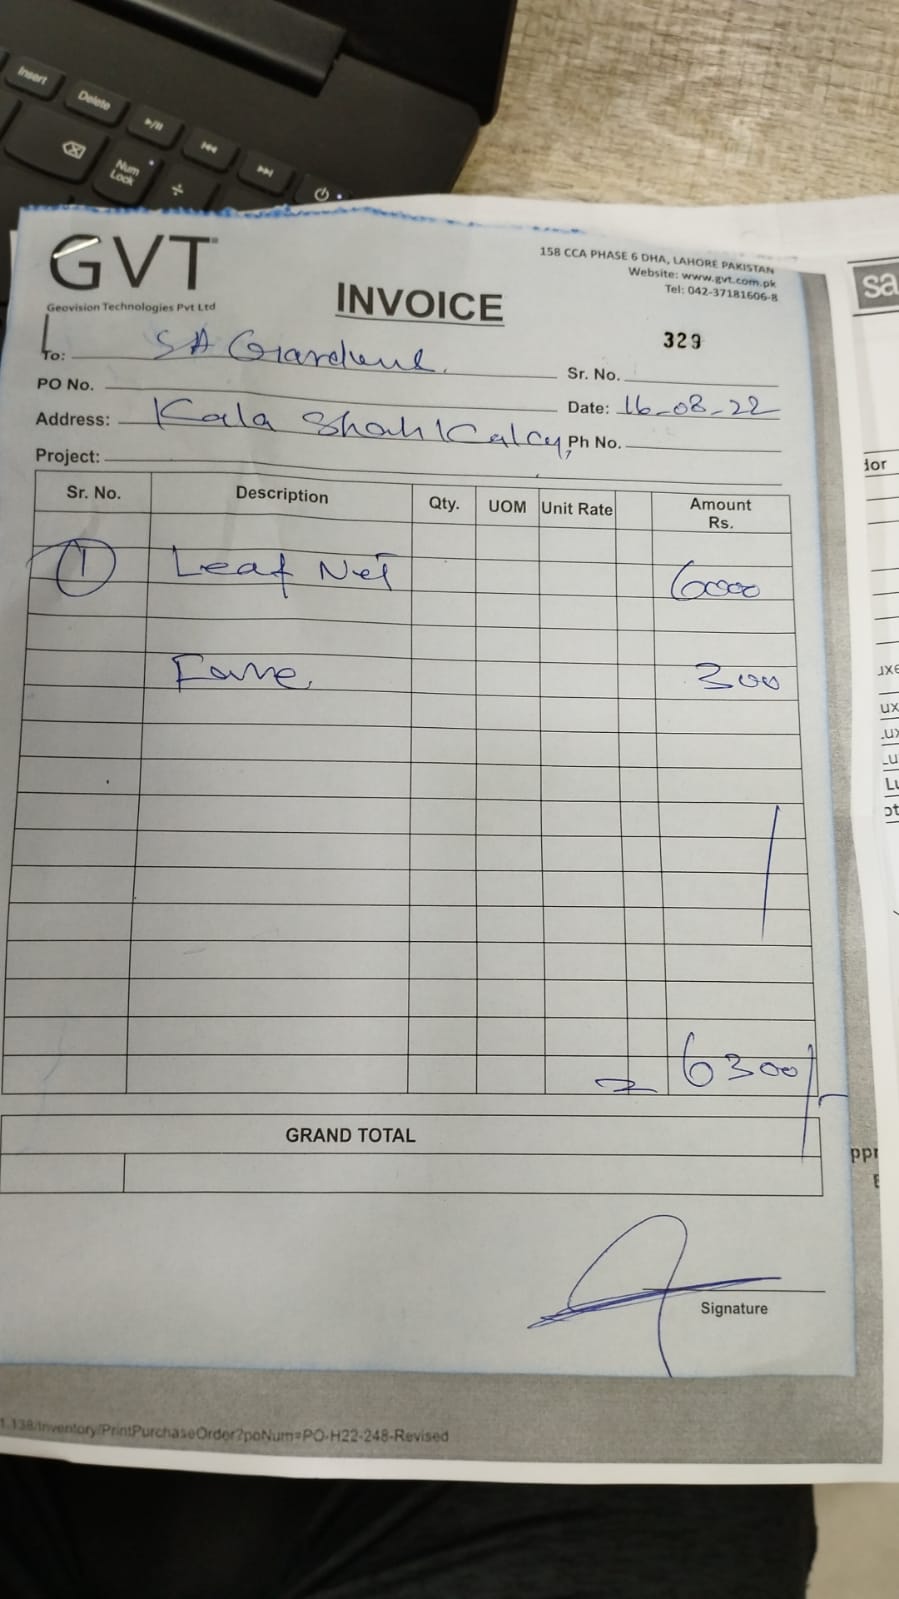 Insert
Delete
Num
Lock
GVT
Geovision Technologies Pvt Ltd
158 CCA PHASE 6 DHA, LAHORE PAKISTAN
Website: www.gvt.com.pk
Tel: 042-37181606-8
INVOICE
329
To: SA Gardens
Sr. No.
PO No.
Date: 16-08-22
Address: Kala Shah Kalcy,
Ph No.
Project:
Sr. No. Description Qty. UOM Unit Rate Amount Rs.
1 Leaf Net 6000
Fare 300
= 6300/-
GRAND TOTAL
Signature
1.138/Inventory/PrintPurchaseOrder?poNum=PO-H22-248-Revised
sa